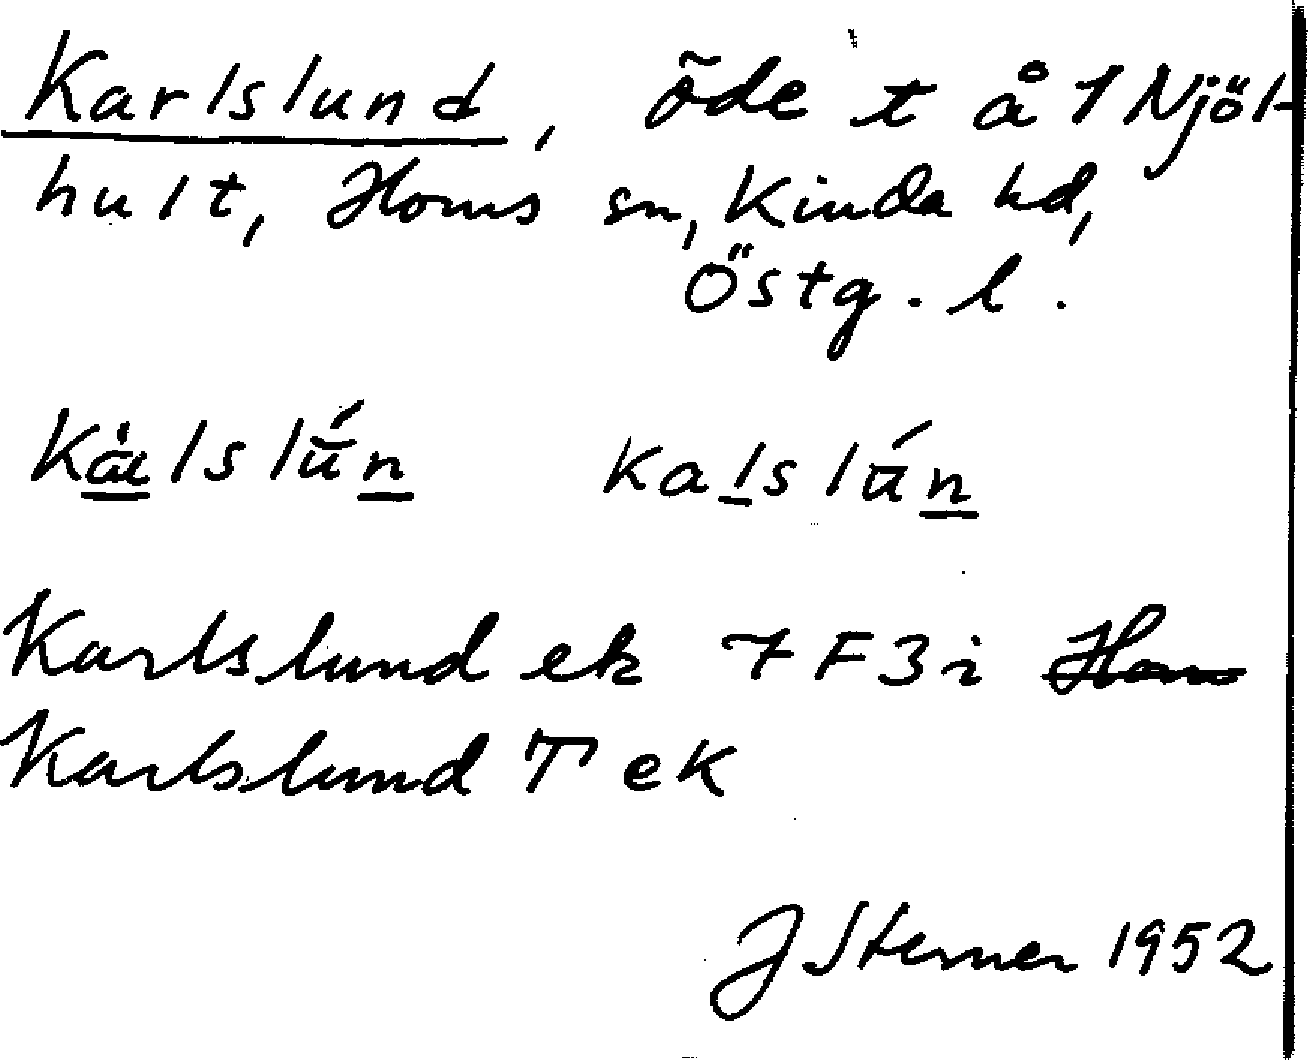 Karlslund, öde t å 1 Njöl-
hult, Horns sn, Kinda hd,
Östg. l.
kȧ̱lslū́ṉ kaḻslū́ṉ
Karlslund ek 7F3i
Karlslund T ek
J Sterner 1952